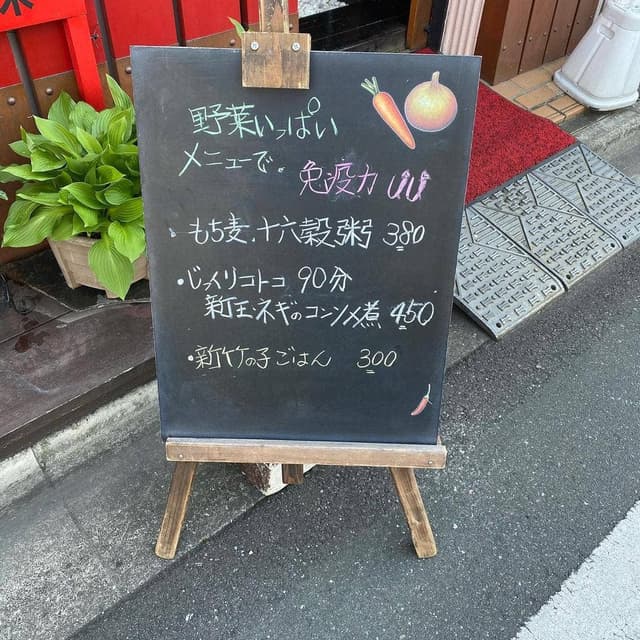 野菜いっぱい
メニューで。
免疫力
・もち麦、十六穀粥 380
・じっくりコトコト 90分
新玉ネギのコンソメ煮 450
・新竹の子ごはん 300